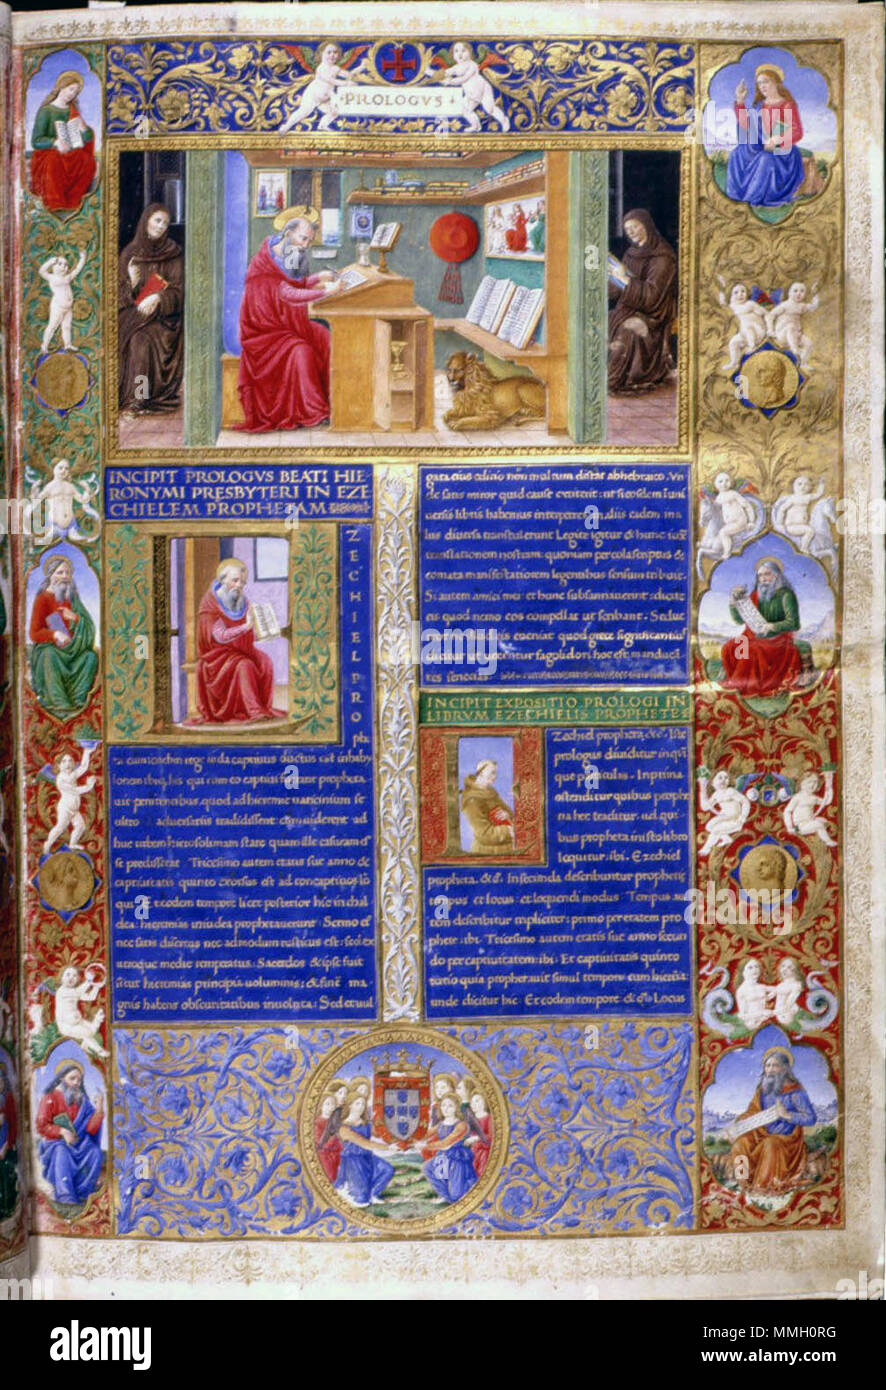 PROLOGVS
INCIPIT PROLOGVS BEATI HIE
RONYMI PRESBYTERI IN EZE
CHIELEM PROPHETAM
EZECHIEL PRO
phe
ta cum ioachin rege iuda captiuus ductus est in baby
lonem ibiq; his qui cum eo captiui fuerant prophetauit
penitentibus quod ad hieremie uaticinium se
ultro aduersariis tradidissent & uiderent ad
huc urbem hierosolimam stare quam ille casuram es
se predixerat Tricesimo autem etatis sue anno &
captiuitatis quinto exorsus est ad concaptiuos lo
qui Et eodem tempore licet posterior hic in chal
dea: hieremias in iudea prophetauerunt: Sermo ei
nec satis disertus nec admodum rusticus est: sed ex
utroque medie temperatus: Sacerdos & ipse fuit
sicut hieremias principia uoluminis: & finis ma
gnis habens obscuritatibus inuoluta: Sed et uul
gata eius editio non multum distat ab hebraico. Vn
de satis miror quid cause extiterit: ut si eosdem in uni
uersis libris habemus interpretes in aliis eadem in a
liis diuersa transtulerunt Legite igitur & hunc iuxta
translationem nostram: quoniam per cola scriptus &
comata manifestiorem legentibus sensum tribuit.
Si autem amici mei et hunc subsannauerint: dicite
eis quod nemo eos compellat ut scribant. Sed ue
INCIPIT EXPOSITIO PROLOGI IN
LIBRVM EZECHIELIS PROPHETE
Zechiel propheta. &c. Iste
prologus diuiditur in qui
que particulas. In prima
ostenditur quibus prophe
tia hec traditur
bus propheta in isto libro
loquitur. ibi. Ezechiel
propheta. &c. In secunda describuntur prophetie
tempus et locus: et loquendi modus. Tempus au
tem describitur tripliciter: primo per etatem pro
phete: ibi. Tricesimo autem etatis sue anno secun
do per captiuitatem: ibi. Et captiuitatis quinto
tertio quia prophetauit simul tempore cum hieremia:
unde dicitur hic. Et eodem tempore & c. Locus
alamy
MMH0RG
www.alamy.com